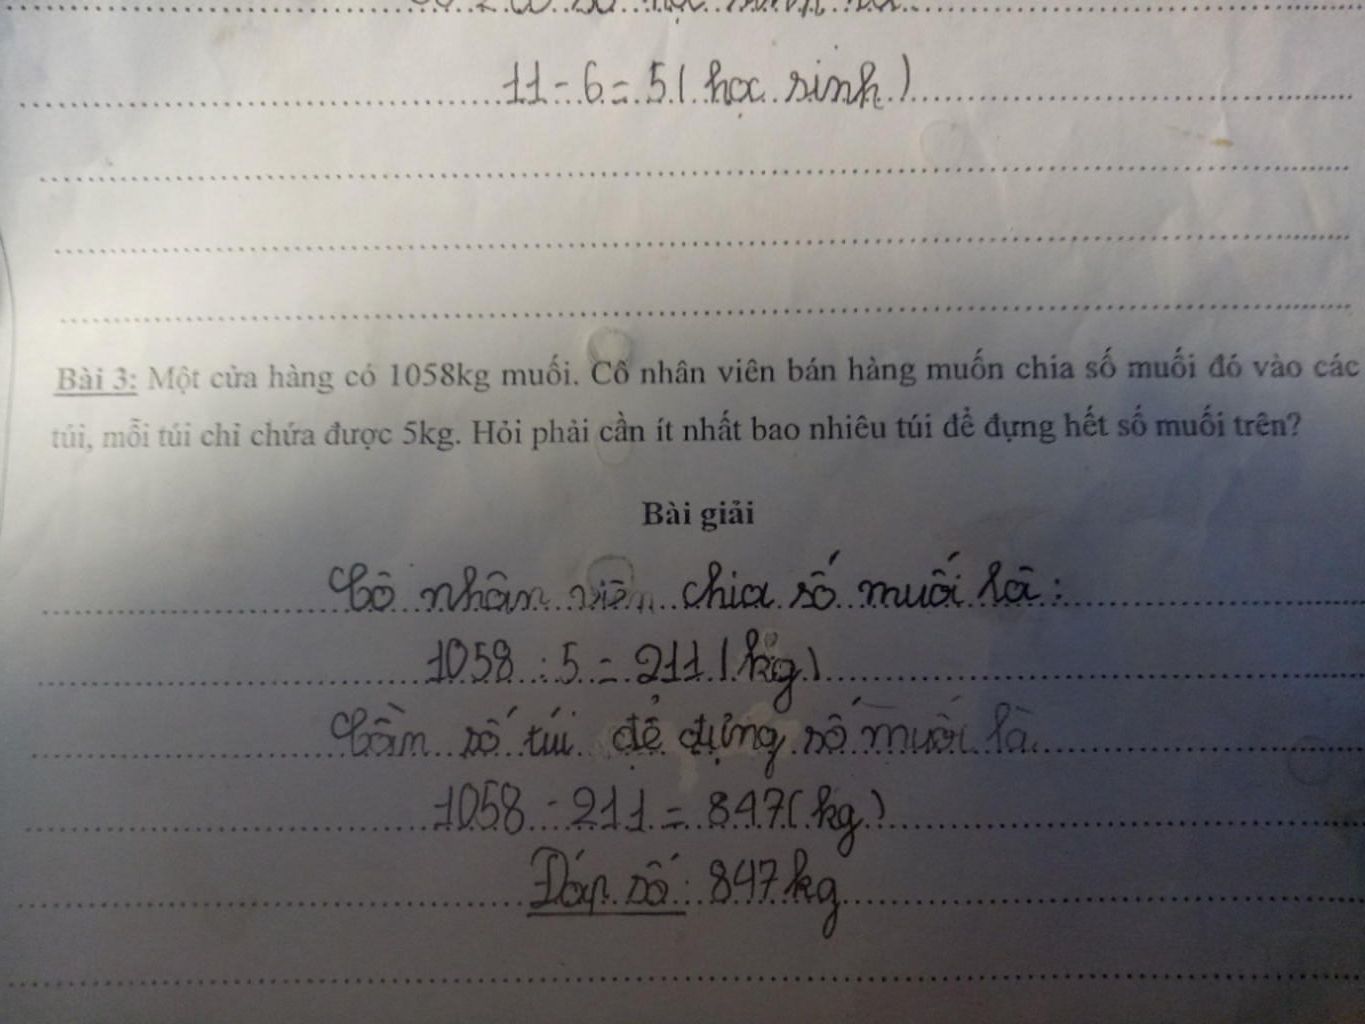 11 - 6 = 5 ( học sinh )
Bài 3: Một cửa hàng có 1058kg muối. Cô nhân viên bán hàng muốn chia số muối đó vào các
túi, mỗi túi chỉ chứa được 5kg. Hỏi phải cần ít nhất bao nhiêu túi để đựng hết số muối trên?
Bài giải
Cô nhân viên chia số muối là :
1058 : 5 = 211 ( kg )
Cần số túi để đựng số muối là
1058 - 211 = 847 ( kg )
Đáp số : 847 kg